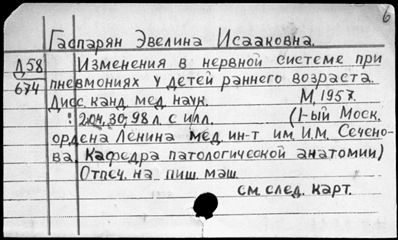 6
Гаспарян Эвелина Исааковна.
Д58 Изменения в нервной системе при
674 пневмониях у детей раннего возраста.
Дисс. канд. мед. наук. М, 1957.
: 204, 30, 98 л. с илл. (I-ый Моск.
ордена Ленина мед. ин-т им. И.М. Сечено-
ва. Кафедра патологической анатомии)
Отпеч. на пиш. маш.
см. след. карт.